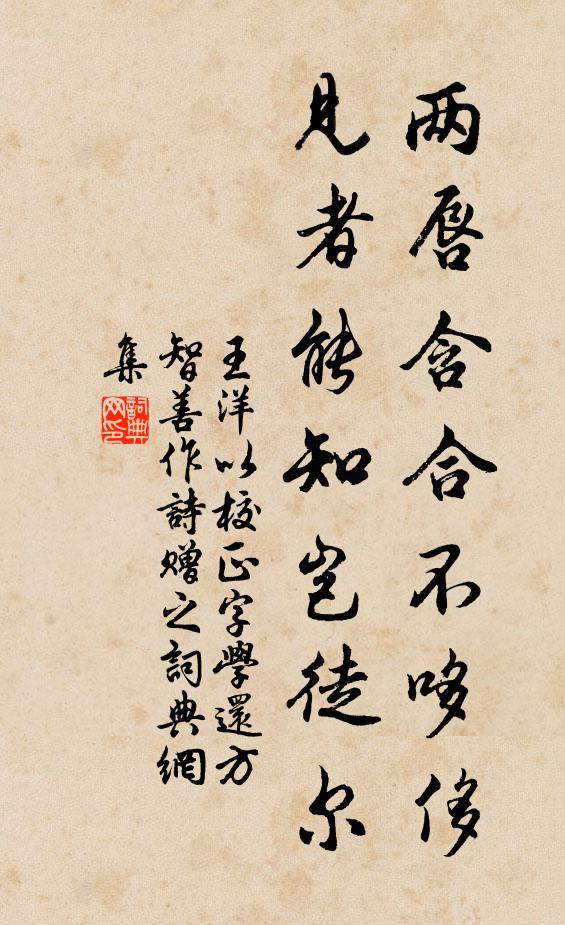 两唇含合不哆侈
見者能知岂徒尔
王洋以校正字學還方
智善作詩赠之詞典網
集
詞典
网印